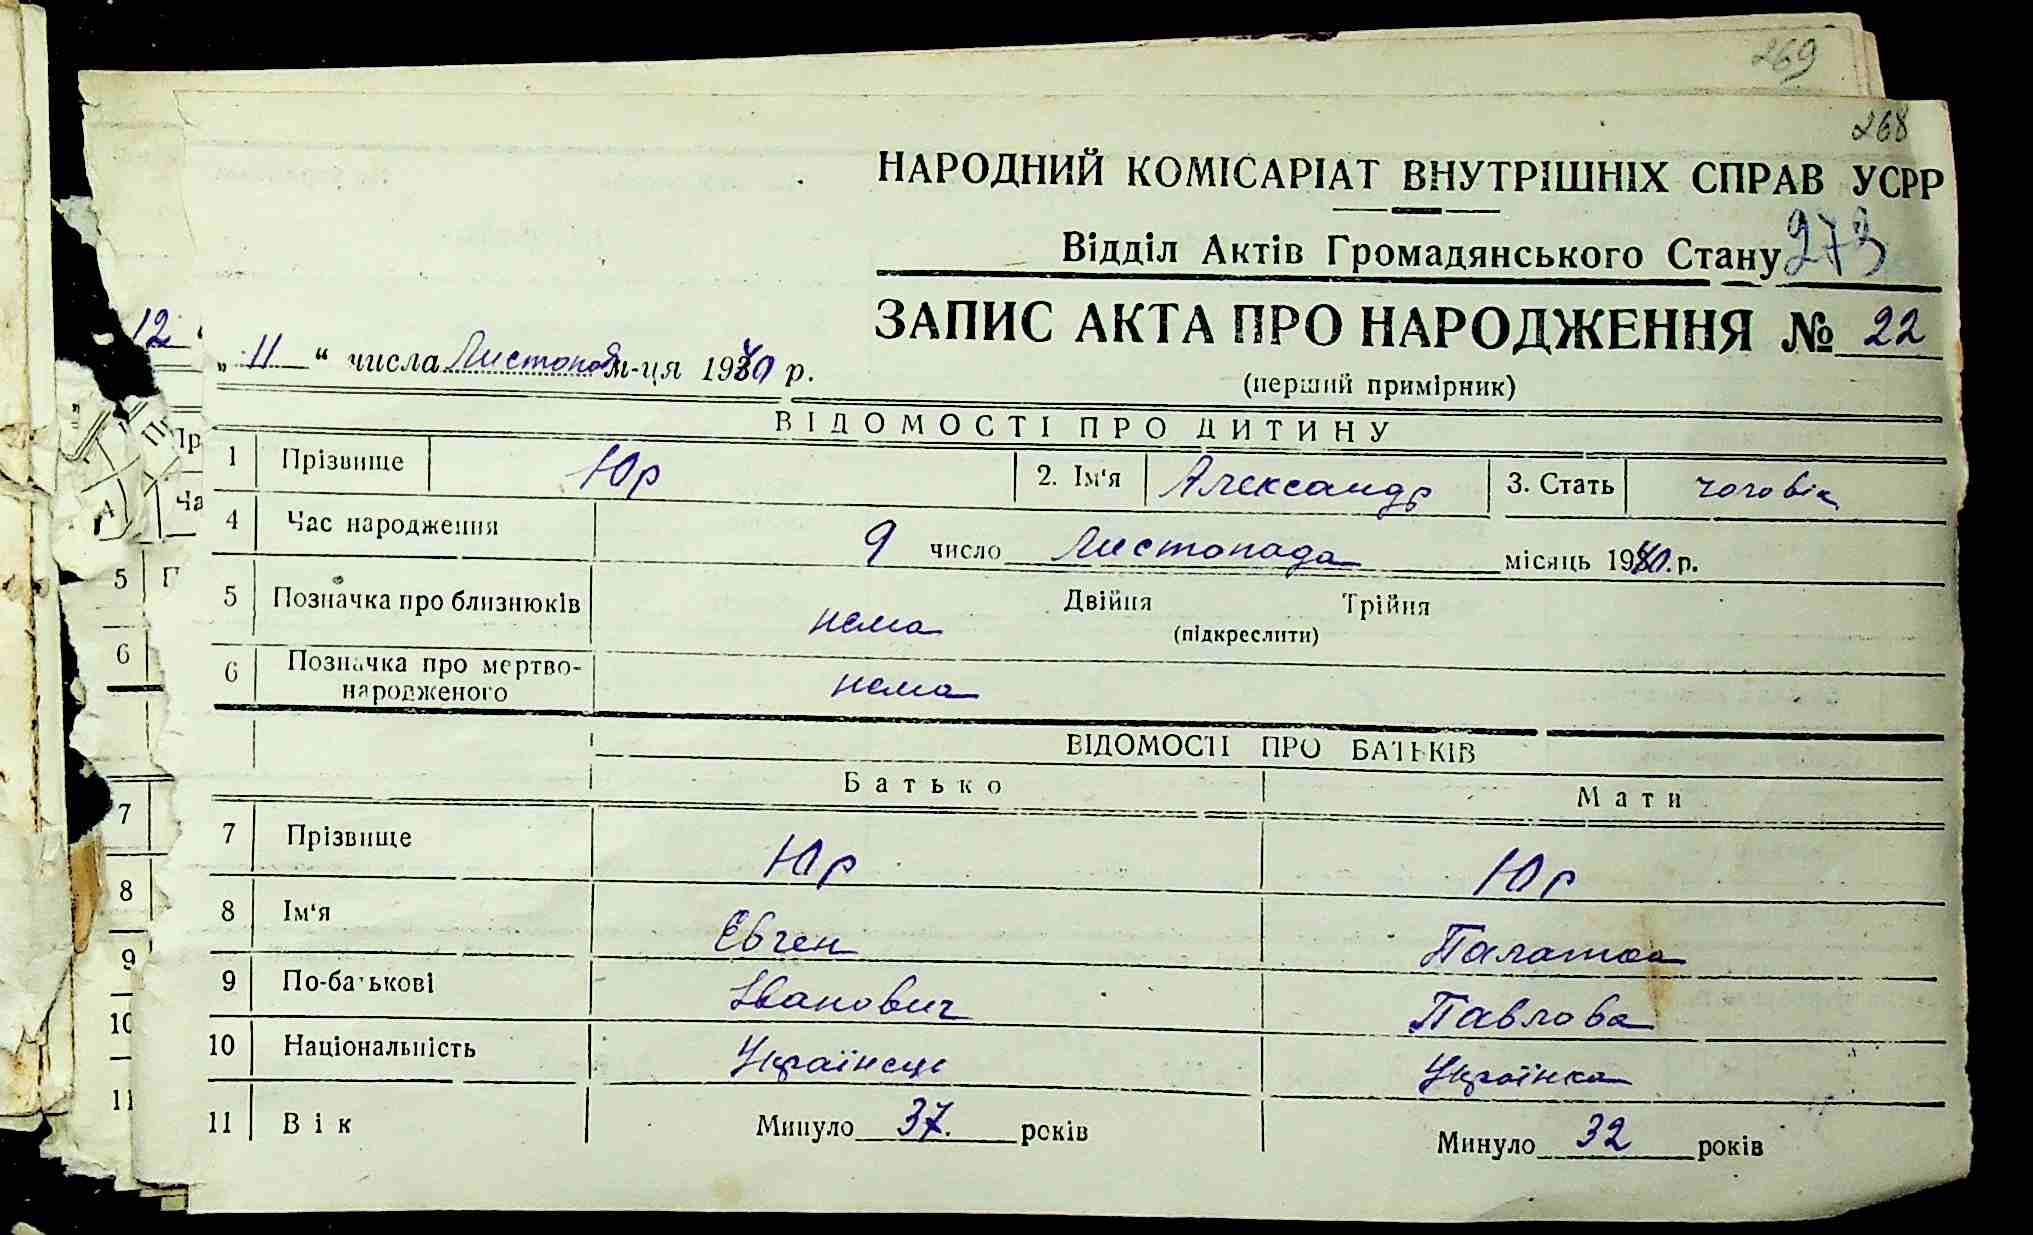 269
268
НАРОДНИЙ КОМІСАРІАТ ВНУТРІШНІХ СПРАВ УСРР
Відділ Актів Громадянського Стану 273
ЗАПИС АКТА ПРО НАРОДЖЕННЯ № 22
(перший примірник)
12
„ 11 “ числа Листопад м-ця 1940 р.
ВІДОМОСТІ ПРО ДИТИНУ
1 Прізвище Юр 2. Ім'я Александр 3. Стать чоловік
4 Час народження 9 число Листопада місяць 1940 р.
5 Позначка про близнюків нема Двійня Трійня
(підкреслити)
6 Позначка про мертво-
народженого нема
ВІДОМОСТІ ПРО БАТЬКІВ
Батько Мати
7 Прізвище Юр Юр
8 Ім'я Евген
9 По-батькові Іванович Павлова
10 Національність Українець Українка
11 Вік Минуло 37 років Минуло 32 років
5
6
7
8
9
10
11